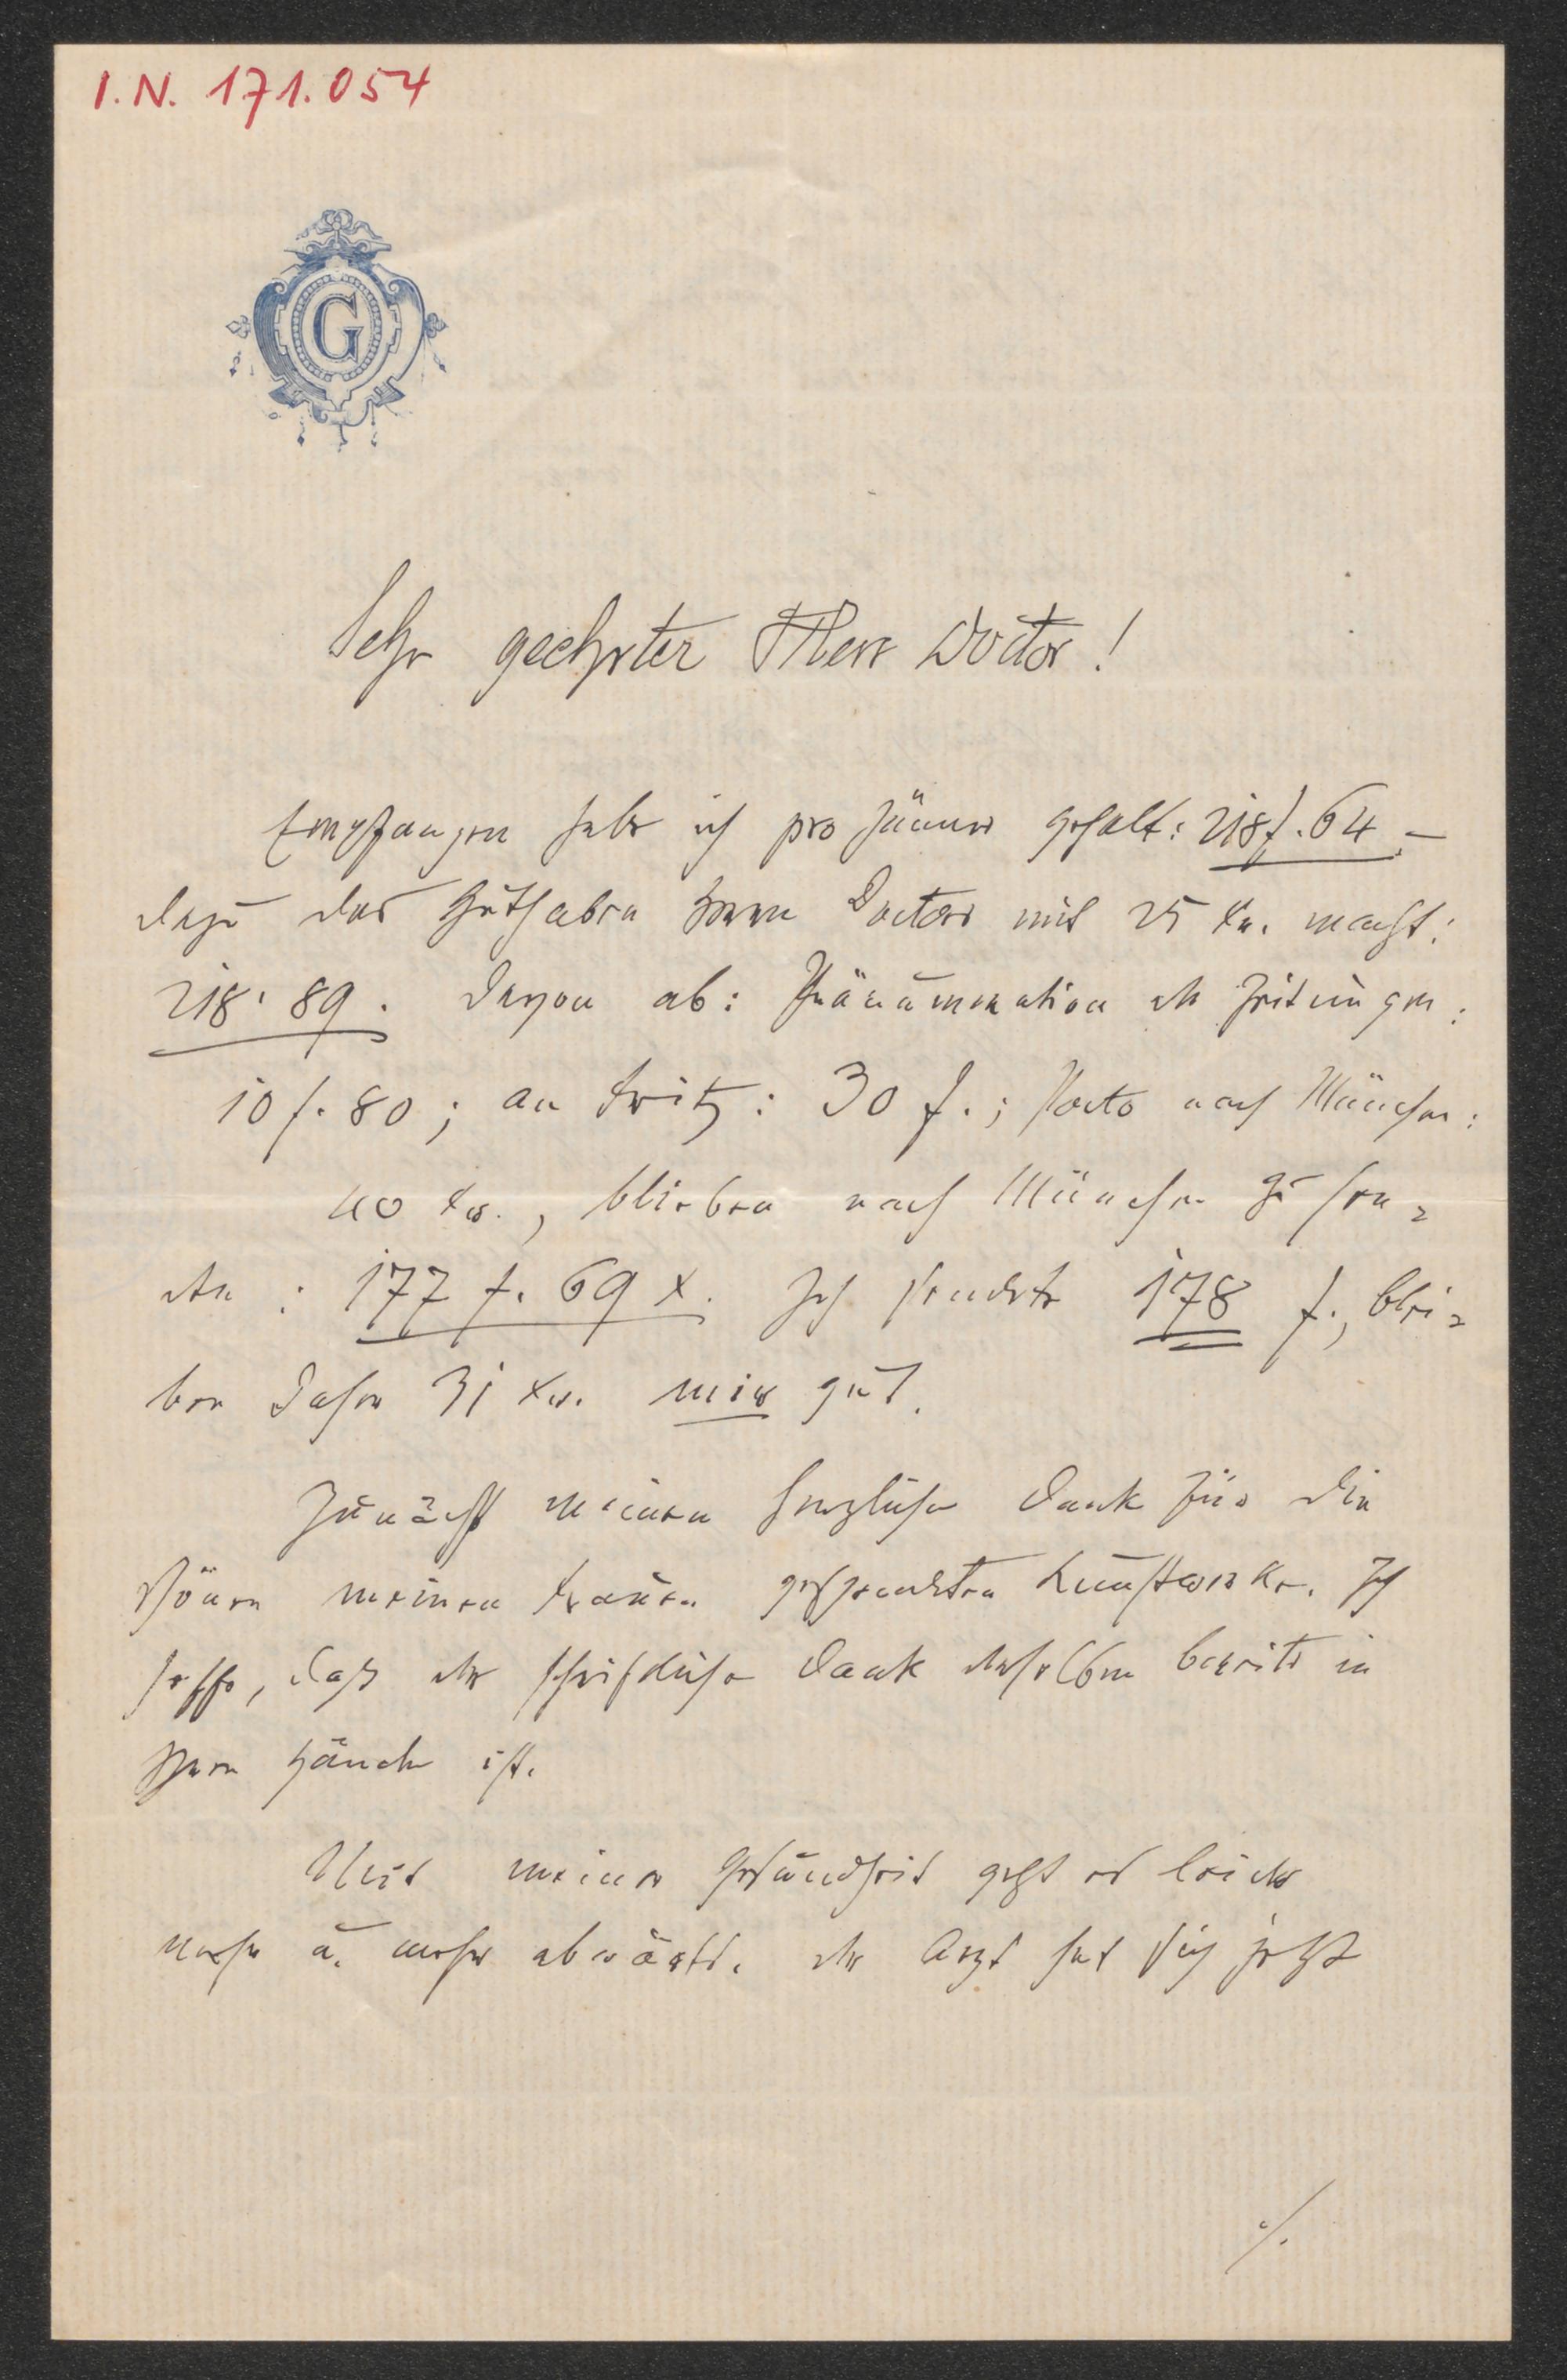 I.N. 171.054
G
Sehr geehrter Herr Doctor!
Empfangen habe ich pro Jänner Gehalt: 218 f. 64.–
dazu das Guthaben Herrn Doctors mit 25 kr. macht:
218·89. Davon ab: Pränumeration der Zeitungen:
10 f. 80; an Fritz: 30 f.; Porto nach München:
40 kr., blieben nach München zu sen-
den: 177 f. 69 x. Ich sendete 178 f., blei-
ben daher 31 kr. mir gut.
Zunächst meinen herzlichen Dank für die
schönen meinen Frauen gespendeten Kunstwerke. Ich
hoffe, daß der schriftliche Dank derselben bereits in
Ihren Händen ist.
Mit meiner Gesundheit geht es leider
mehr u. mehr abwärts. Der Arzt hat sich jetzt
./.